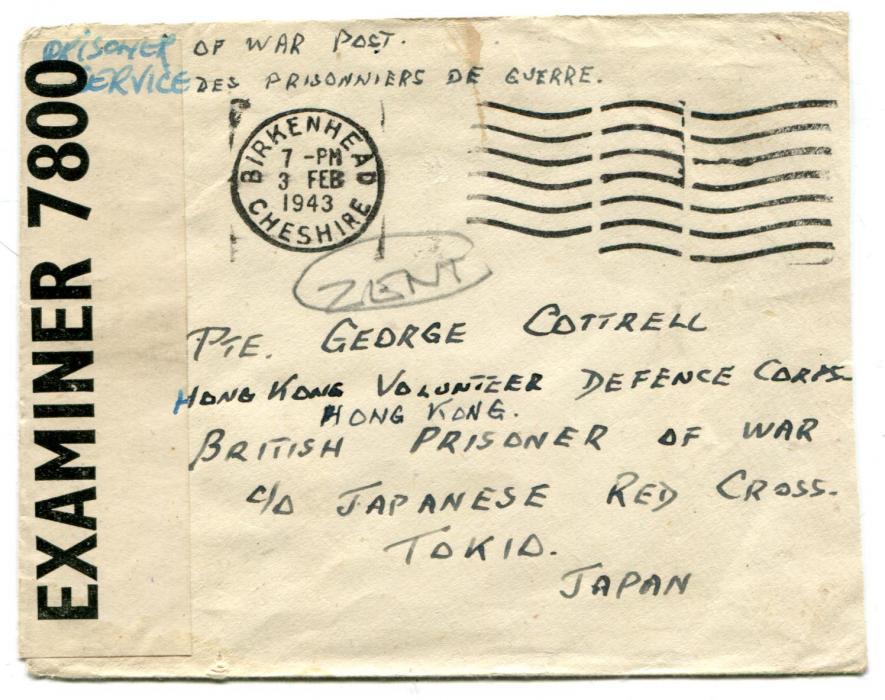 PRISONER OF WAR POST.
SERVICE DES PRISONNIERS DE GUERRE.
EXAMINER 7800
BIRKENHEAD
7-PM
3 FEB
1943
CHESHIRE
ZENT
PTE. GEORGE COTTRELL
HONG KONG VOLUNTEER DEFENCE CORPS.
HONG KONG.
BRITISH PRISONER OF WAR
C/O JAPANESE RED CROSS.
TOKIO.
JAPAN